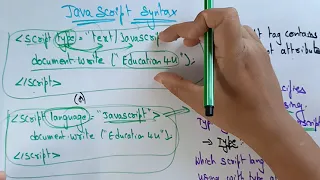 Java Script Syntax
<script type = "text/Javascript
document.write ("Education 4U");
</script>
(or)
<script language = "Javascript">
document.write ("Education 4U");
</script>
t tag contains
attribut
cifies
sing.
Type
script
→ Type
Which script lang
using with type a